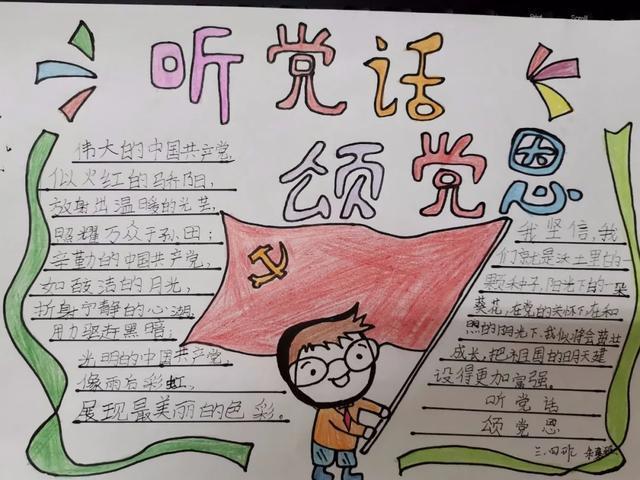 听党话
颂党恩
伟大的中国共产党,
似火红的骄阳,
放射出温暖的光芒,
照耀万众于
辛勤的中国共产党,
如皎洁的月光,
折射宁静的心湖,
用力驱赶黑暗;
光明的中国共产党,
像雨后彩虹、
展现最美丽的色彩。
我坚信,我
们就是沃土里的一
颗种子,阳光下的一朵
葵花,在党的关怀下,在和
煦的阳光下,我们将会茁壮
成长,把祖国的明天建
设得更加富强。
听党话
颂党恩
三.四班